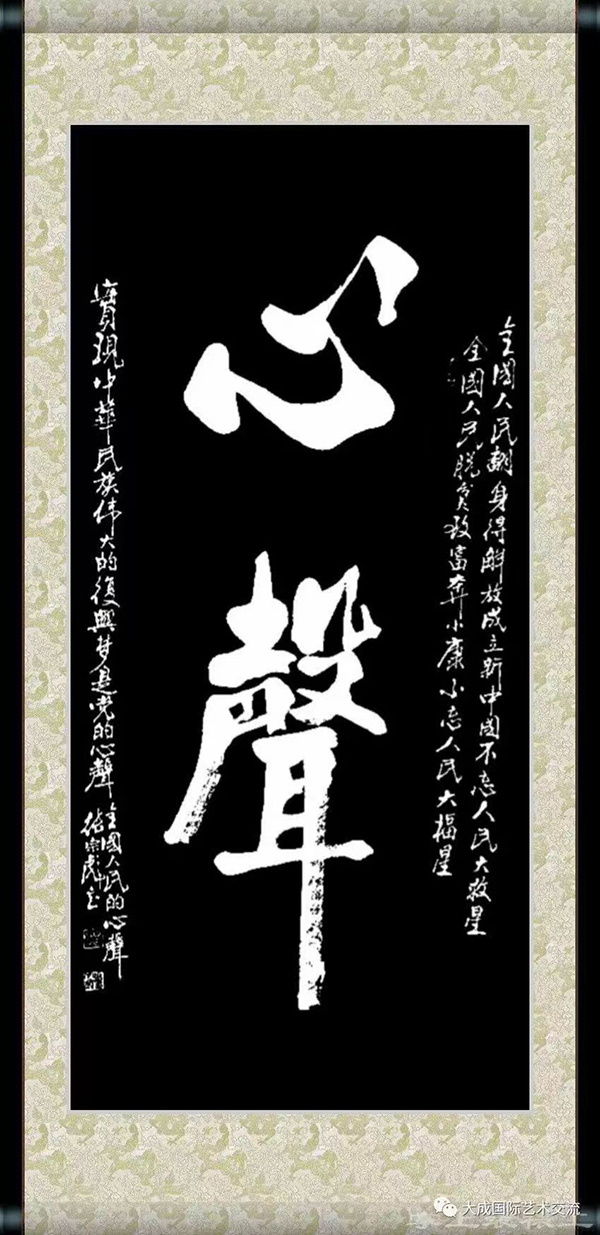 全國人民翻身得解放成立新中國不忘人民大救星
全國人民脱贫致富奔小康不忘人民大福星
心聲
實現中華民族伟大的復興梦是党的心聲
全國人民的心聲
大成国际艺术交流